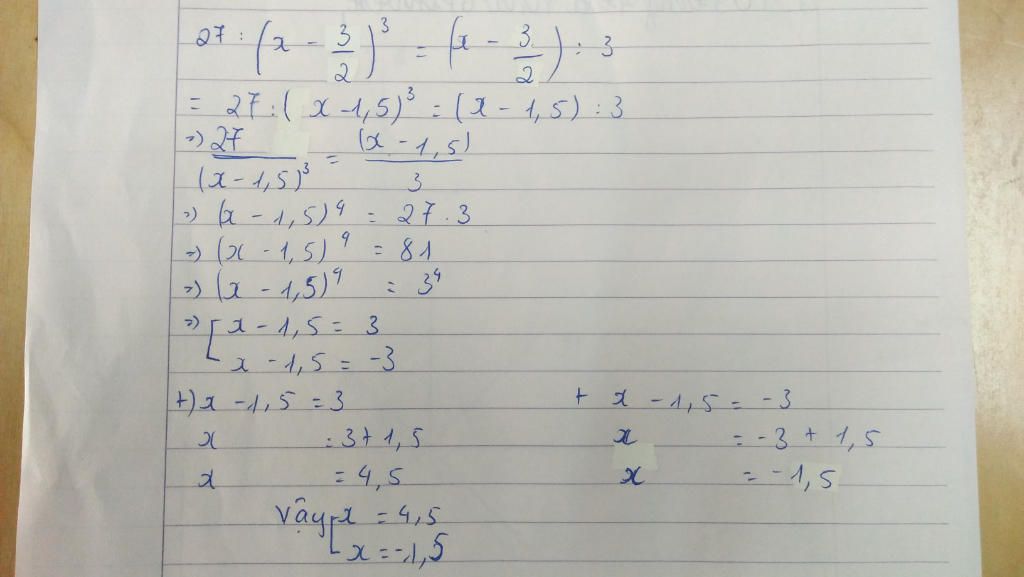 27 : (x - 3/2)³ = (x - 3/2) : 3
= 27 : (x - 1,5)³ = (x - 1,5) : 3
=> 27/(x - 1,5)³ = (x - 1,5)/3
=> (x - 1,5)⁴ = 27 . 3
=> (x - 1,5)⁴ = 81
=> (x - 1,5)⁴ = 3⁴
=> [ x - 1,5 = 3
x - 1,5 = -3
+) x - 1,5 = 3
x = 3 + 1,5
x = 4,5
+ x - 1,5 = -3
x = -3 + 1,5
x = -1,5
Vậy [ x = 4,5
x = -1,5